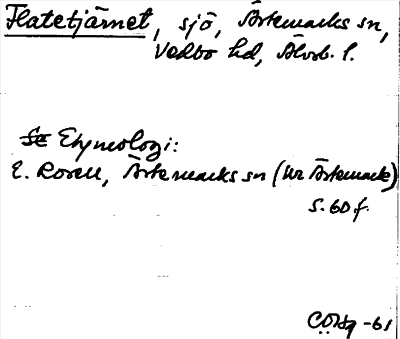 Flatetjärnet, sjö, Ärtemarks sn,
Vedbo hd, Älvsb. l.
Se Etymologi:
E. Rosell, Ärtemarks sn (ur Ärtemark)
s. 60 f.
-61